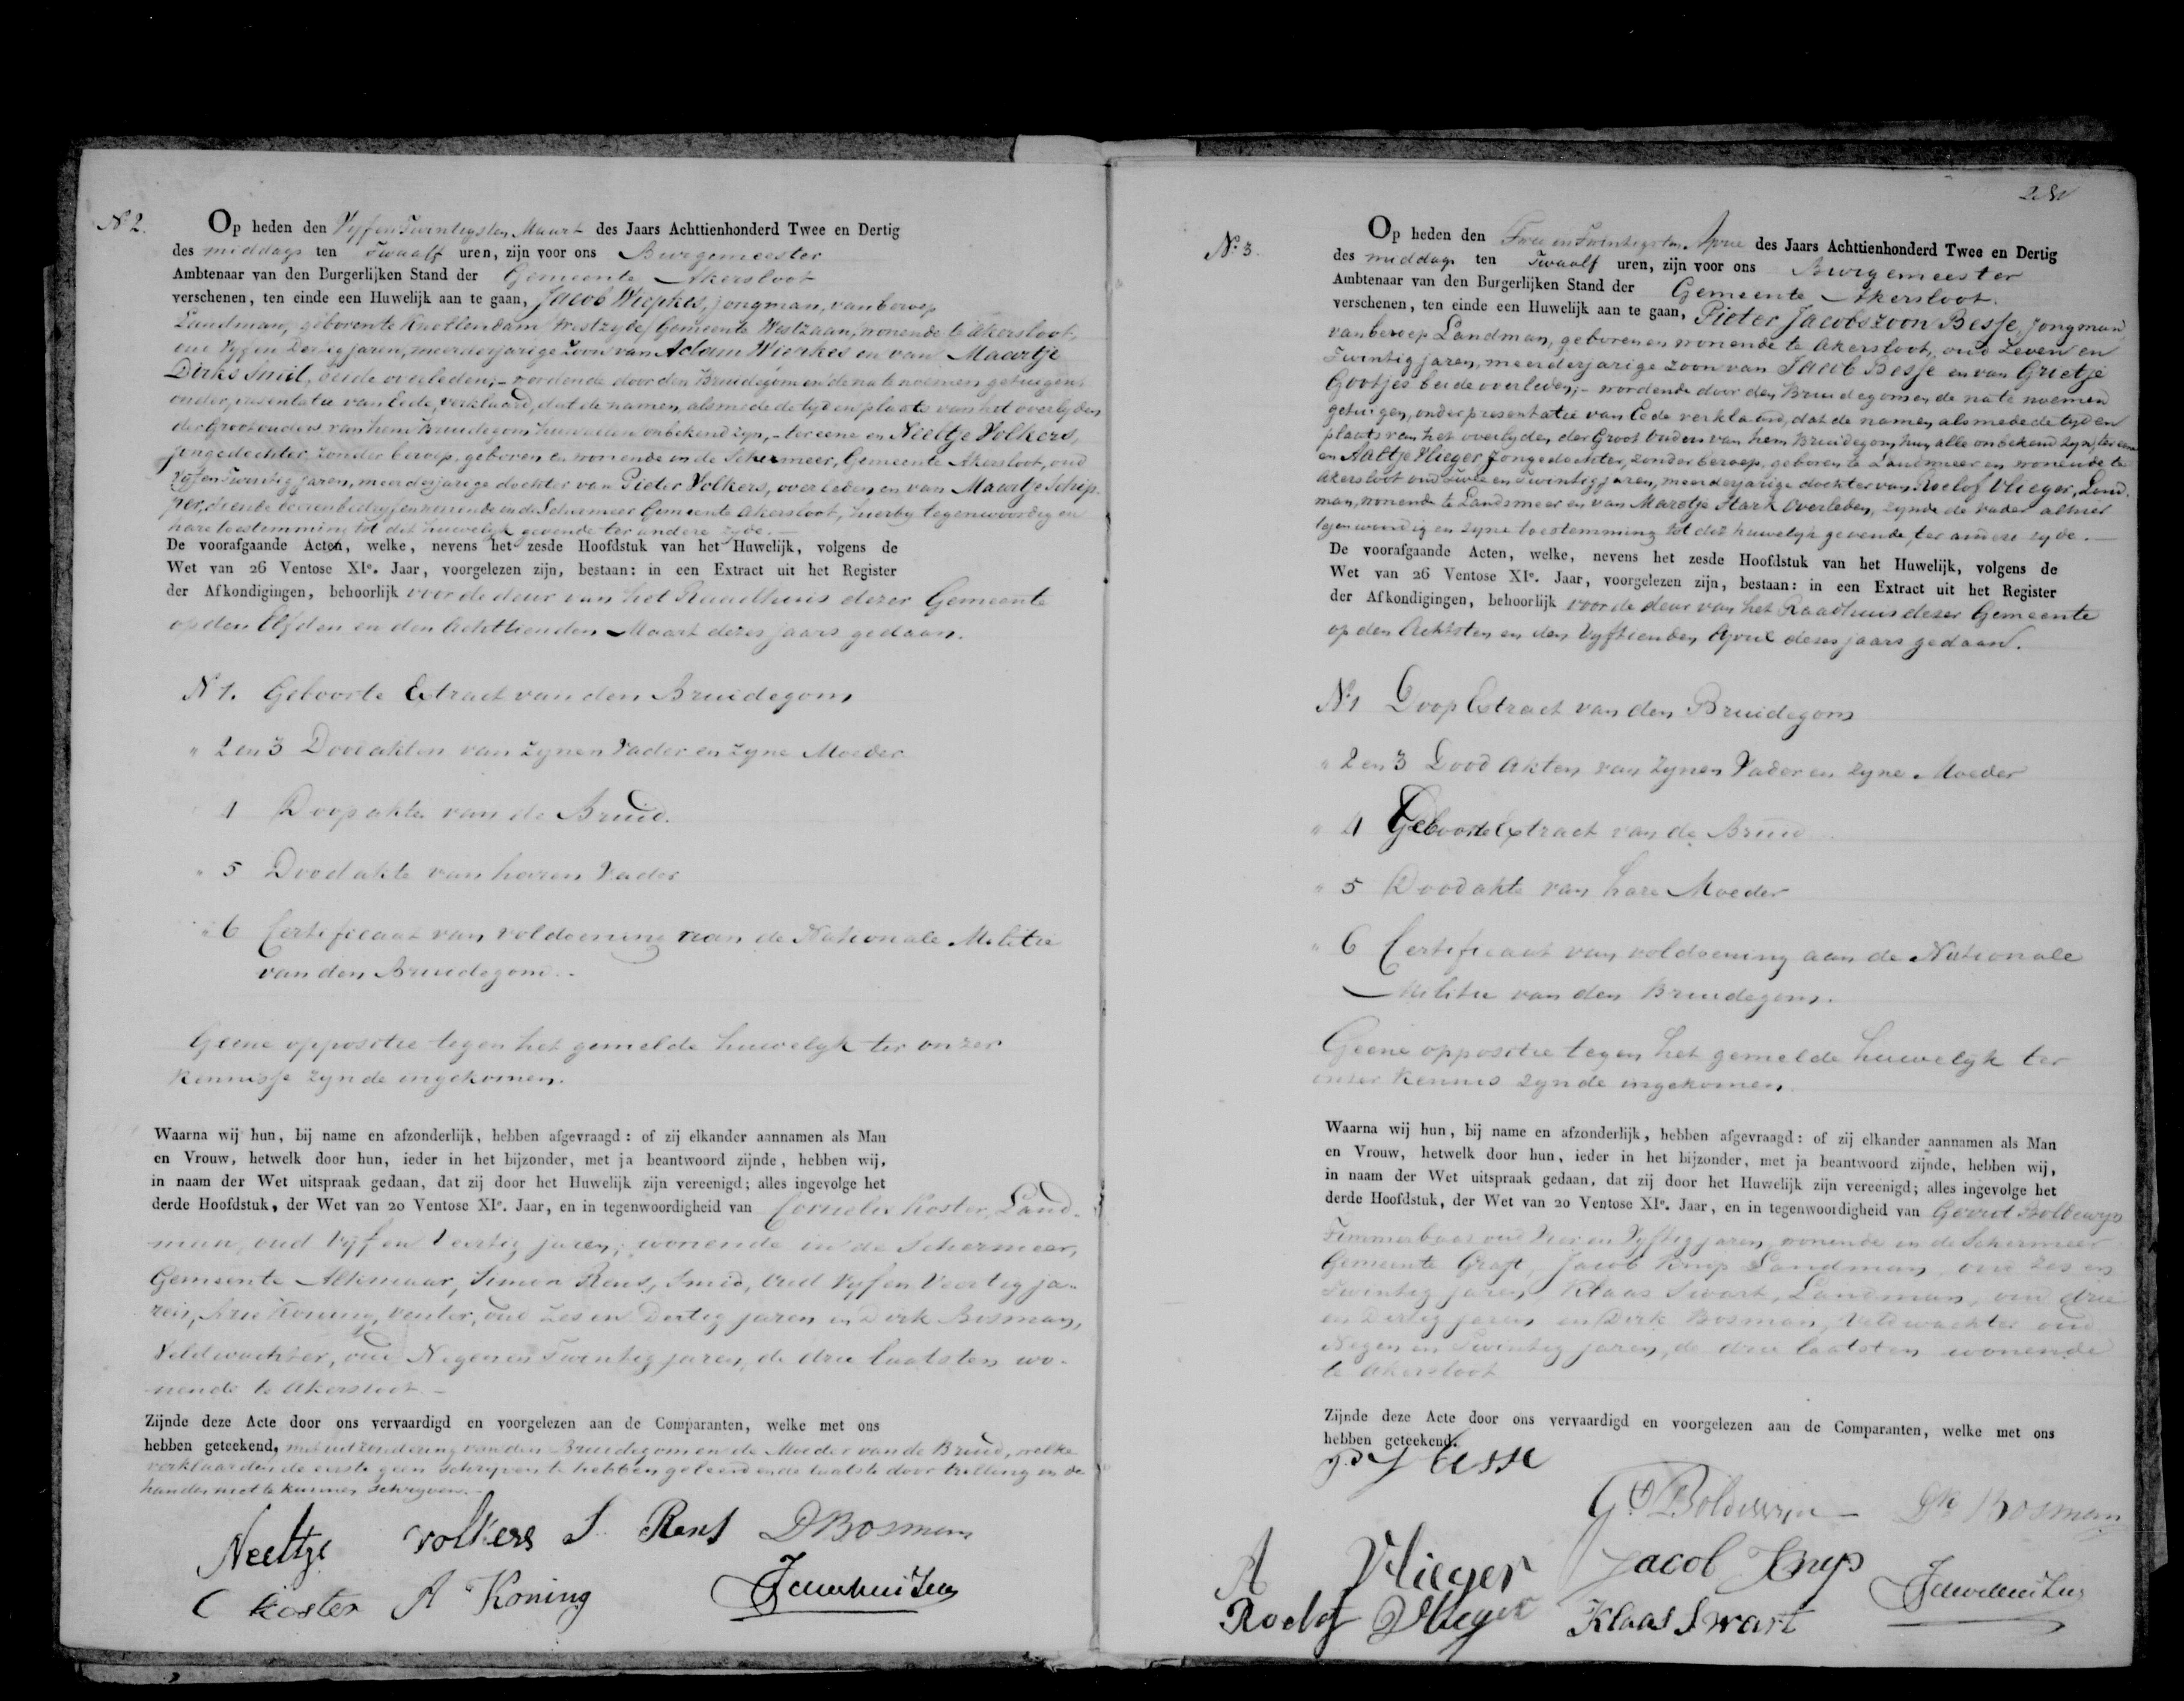 N 2.
Op heden den Vyfen Twintigsten Maart des Jaars Achttienhonderd Twee en Dertig
des middags ten Twaalf uren, zijn voor ons Burgemeester
Ambtenaar van den Burgerlijken Stand der Gemeente Akersloot
verschenen, ten einde een Huwelijk aan te gaan, Jacob Wiepkes, jongman, van beroep
Landman, geboren te Knollendam (Westzyde) Gemeente Westzaan, wonende te Akersloot,
oud Vyf en Dertig jaren, meerderjarige Zoon van Adam Wiepkes en van Maartje
Dirks Smit, beide overleden; - wordende door den Bruidegom en de na te noemen getuigen
onder presentatie van Eede, verklaard, dat de namen, alsmede de tyd en plaats van het overlyden
der Grootouders van hem Bruidegom hun allen onbekend zyn, - ter eene en Neeltje Volkers,
Jonge dochter, zonder beroep, geboren en wonende in de Schermeer, Gemeente Akersloot, oud
Vyf en Twintig jaren, meerderjarige dochter van Pieter Volkers, overleden, en van Maartje Schip-
per, boerenbedryf en wonende in de Schermeer Gemeente Akersloot, hierby tegenwoordig en
hare toestemming tot dit huwelyk gevende ter andere zyde. -
De voorafgaande Acten, welke, nevens het zesde Hoofdstuk van het Huwelijk, volgens de
Wet van 26 Ventose XIe. Jaar, voorgelezen zijn, bestaan: in een Extract uit het Register
der Afkondigingen, behoorlijk voor de deur van het Raadhuis dezer Gemeente
op den Elfden en den Achttienden Maart dezes jaars gedaan.
N 1. Geboorte Extract van den Bruidegom
" 2 en 3 Dood akten van zynen Vader en zyne Moeder
4 Doop akte van de Bruid.
" 5 Dood akte van haren Vader
" 6 Certificaat van voldoening aan de Nationale Militie
van den Bruidegom. -
Geene oppositie tegen het gemelde huwelyk ter onzer
Kennisse zynde ingekomen.
Waarna wij hun, bij name en afzonderlijk, hebben afgevraagd: of zij elkander aannamen als Man
en Vrouw, hetwelk door hun, ieder in het bijzonder, met ja beantwoord zijnde, hebben wij,
in naam der Wet uitspraak gedaan, dat zij door het Huwelijk zijn vereenigd; alles ingevolge het
derde Hoofdstuk, der Wet van 20 Ventose XIe. Jaar, en in tegenwoordigheid van Cornelis Koster, Land-
man, oud Vyf en Veertig jaren, wonende in de Schermeer,
Gemeente Alkmaar, Simon Rens, Smid, Oud Vyf en Veertig ja-
ren, Arie Koning, venter, oud Zes en Dertig jaren en Dirk Bosman,
Veldwachter, oud Negen en Twintig jaren, de drie laatsten wo-
nende te Akersloot. -
Zijnde deze Acte door ons vervaardigd en voorgelezen aan de Comparanten, welke met ons
hebben geteekend, met uitzondering van den Bruidegom en de Moeder van de Bruid, welke
verklaarden de eerste geen schryven te hebben geleerd en de laatste door trilling in de
handen niet te kunnen schryven. -
Neeltje Volkers S. Rens D Bosman
C Koster A Koning
N. 3.
Op heden den Twee en Twintigsten April des Jaars Achttienhonderd Twee en Dertig
des middags ten Twaalf uren, zijn voor ons Burgemeester
Ambtenaar van den Burgerlijken Stand der Gemeente Akersloot.
verschenen, ten einde een Huwelijk aan te gaan, Pieter Jacobszoon Besse, Jongman,
van beroep Landman, geboren en wonende te Akersloot, oud Zeven en
Twintig jaren, meerderjarige zoon van Jacob Besse en van Grietje
Gootjes beide overleden; - wordende door den Bruidegom en de na te noemen
getuigen, onder presentatie van Eede verklaard, dat de namen alsmede de tyd en
plaats van het overlyden der Groot Ouders van hem Bruidegom, hun alle onbekend zyn, ter eene
en Aaltje Vlieger Jonge dochter, zonder beroep, geboren te Landsmeer en wonende te
Akersloot oud Twee en Twintig jaren, meerderjarige dochter van Roelof Vlieger, Land-
man, wonende te Landsmeer en van Marotje Stark Overleden, zynde de vader alhier
tegenwoordig en zyne toestemming tot dit huwelyk gevende, ter andere zyde. -
De voorafgaande Acten, welke, nevens het zesde Hoofdstuk van het Huwelijk, volgens de
Wet van 26 Ventose XIe. Jaar, voorgelezen zijn, bestaan: in een Extract uit het Register
der Afkondigingen, behoorlijk voor de deur van het Raadhuis dezer Gemeente
op den Achtsten en den Vyftienden April dezes jaars gedaan.
N 1 Doop Extract van den Bruidegom
" 2 en 3 Dood Akten van zynen Vader en zyne Moeder
" 4 Geboorte Extract van de Bruid
" 5 Dood akte van hare Moeder
" 6 Certificaat van voldoening aan de Nationale
Militie van den Bruidegom.
Geene oppositie tegen het gemelde huwelyk ter
onzer Kennis zynde ingekomen.
Waarna wij hun, bij name en afzonderlijk, hebben afgevraagd: of zij elkander aannamen als Man
en Vrouw, hetwelk door hun, ieder in het bijzonder, met ja beantwoord zijnde, hebben wij,
in naam der Wet uitspraak gedaan, dat zij door het Huwelijk zijn vereenigd; alles ingevolge het
derde Hoofdstuk, der Wet van 20 Ventose XIe. Jaar, en in tegenwoordigheid van Gerrit Boldewyn
Timmerbaas oud en Vyftig jaren, wonende in de Schermeer
Gemeente Graft, Jacob Knip Landman, oud Zes en
Twintig jaren, Klaas Swart, Landman, oud drie
en Dertig jaren en Dirk Bosman, Veldwachter oud
Negen en Twintig jaren, de drie laatsten wonende
te Akersloot
Zijnde deze Acte door ons vervaardigd en voorgelezen aan de Comparanten, welke met ons
hebben geteekend.
Besse
Gt Boldewijn Dk Bosman
A Vlieger Jacob Knip
Roelof Vlieger Klaas Swart